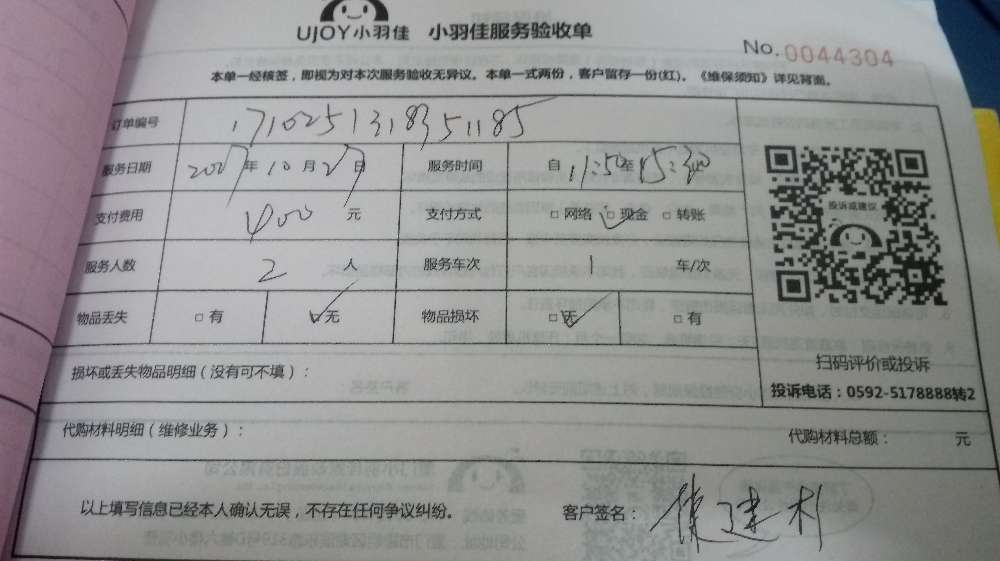 UJOY小羽佳 小羽佳服务验收单
No. 0044304
本单一经核签，即视为对本次服务验收无异议。本单一式两份，客户留存一份(红)。《维保须知》详见背面。
订单编号 1710251318351185
服务日期 2007年10月27日 服务时间 自11:50至15:30
支付费用 400元 支付方式 □网络 ☑现金 □转账
服务人数 2人 服务车次 1 车/次
物品丢失 □有 ☑无 物品损坏 ☑无 □有
投诉或建议
扫码评价或投诉
损坏或丢失物品明细（没有可不填）：
投诉电话：0592-5178888转2
代购材料明细（维修业务）： 代购材料总额： 元
以上填写信息已经本人确认无误，不存在任何争议纠纷。 客户签名：